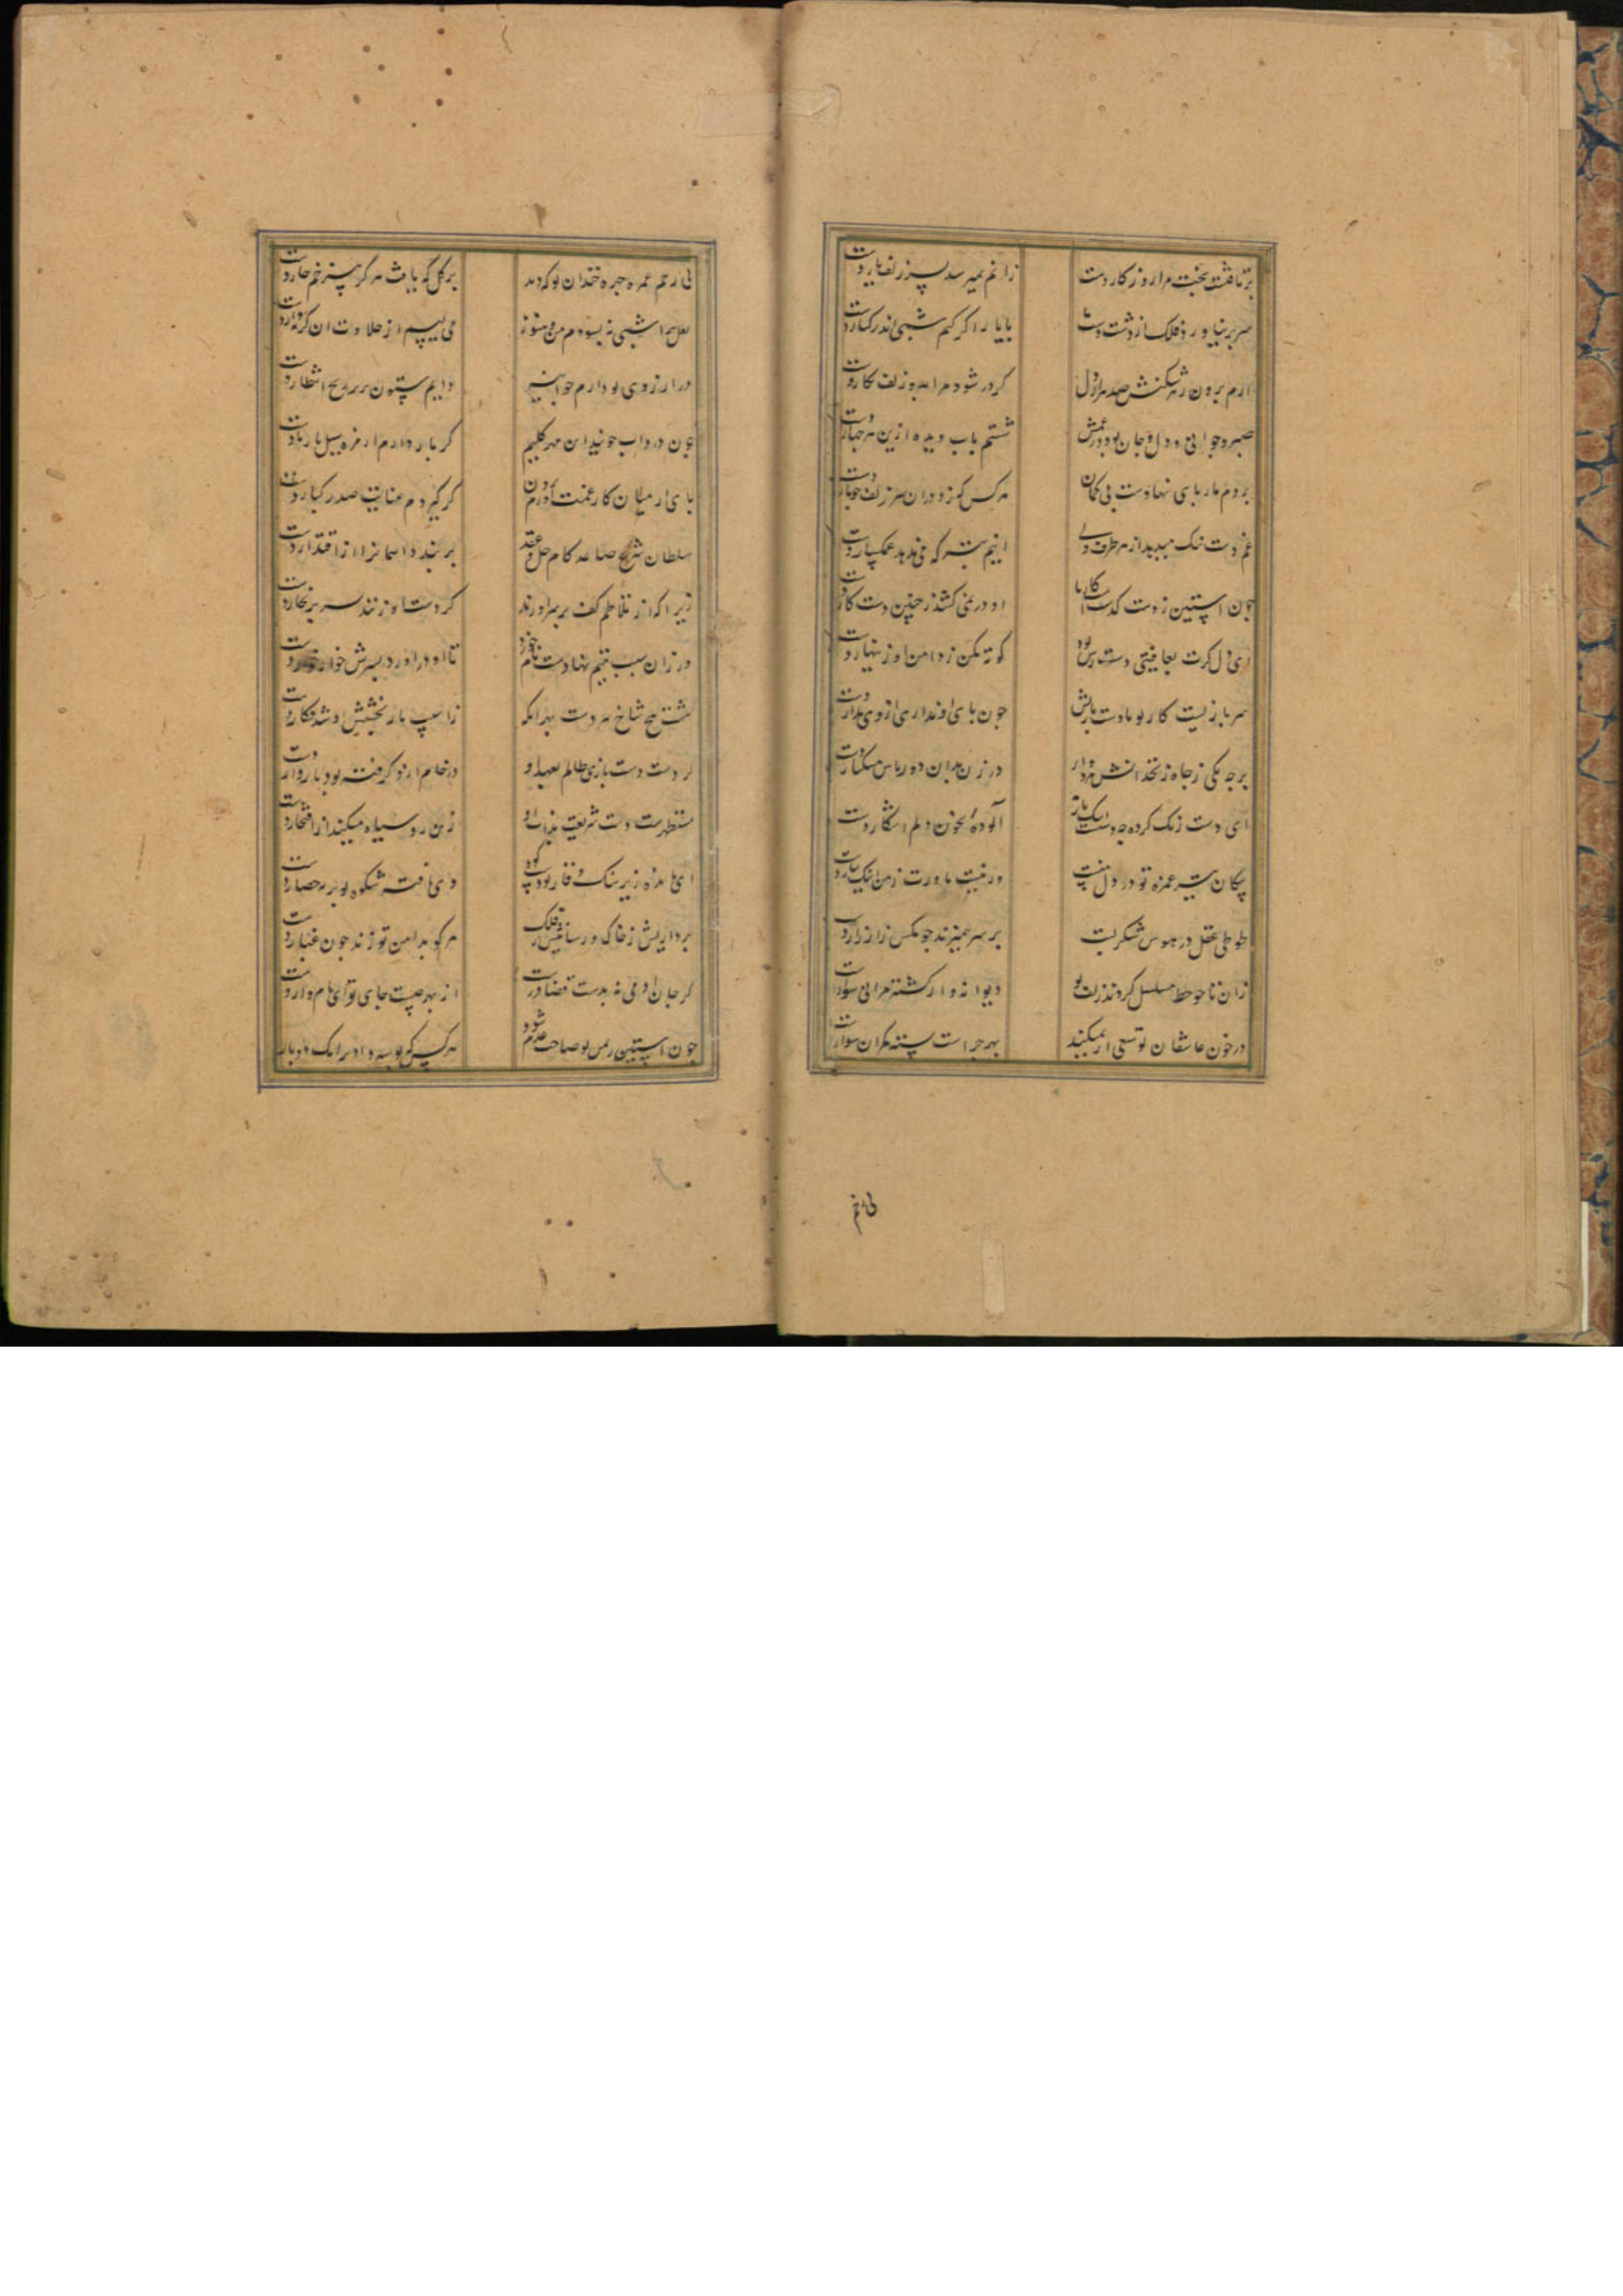 برتافتست بخت مرا روزکار دست
زانم نمیرسد بسر زلف یار دست
سر بر نیاورد فلک از دست دست ما
با یار اگر کنم شبی اندر کنار دست
ارم برون ز هر شکنش صد هزار دل
گر در شود مرا بدو زلف نگار دست
صبر و جوانی و دل و جان بود در غمش
شستم باب دیده ازین هر چهار دست
بر دم مار پای نهادست بی گمان
هر کس که زد در ان سر زلف چو مار دست
غم دست تنگ میدهد از هر طرف ولی
اینم بتر که می ندهد غمگسار دست
چون استین ز دست گذشتست کار ما
او در نمی کشد ز چنین دست کار دست
ای دل گرت بعافیتی دست رس بود
کوته مکن ز دامن او زینهار دست
سر باز نیست کار تو با دست برد عشق
چون پای او نداری ازو می بدار دست
بر چه یکی ز چاه زنخدانش
در زن بدان دو
ای دست رنگ کرده چه دستست اینک باز
آلوده بخون دلم اشکار دست
پیکان تیر غمزه تو در دل منست
ور نیست باورت ز من اینک بیار دست
طوطی عقل در هوس شکر لبت
بر سر همیزند چو مگس زار زار دست
زان تا چو خط مسلسل گردد ز زلف تو
دیوانه وار گشته مرا بی سواد
در خون عاشقان تو سعی ار نمیکند
بهر چراست بسته بران سوار دست
بی زخم
بی زخم غمزه چهره خندان تو که دید
بر گل که یافت هرگز بی زخم خار دست
لعل ترا شبی ببسودم من و هنوز
می لیسم از حلاوت ان گربه وار دست
در ارزوی بوی تو دارم چو
دایم ستون زنخ انتظار دست
چون در داب خونی ان مهر گسلیم
گر باز دارم از مژه سیل بار دست
پای از میان کار غمت آورم برون
گر گیردم عنایت صدر کبار دست
سلطان شرع صاعد کام حل و عقد
بر بندد اسمانرا از اقتدار دست
زیرا که از تلاطم کف بر سر اورند
گر دست او زنند بسر بر بحار دست
در زان سبب یتیم نهادست نام خود
تا او در اورد بسرش خوار خوار دست
نگشت هیچ شاخ سر دست بهر انکه
ز اسیب بار بخشش او شد فکار دست
از دست دست بازی ظالم بعهد او
در خام از رو گرفته بود
مستظهرست دست شریعت بذات او
زین رو سیاه میکند از افتخار دست
ای مانده زیر سنگ وقار تو پای کوه
وی یافته شکوه تو بر هر حصار دست
برداریش ز خاک و رسانیش بر فلک
هر کو بدامن تو زند چون غبار دست
گر جان ادمی نه بدست قضا درست
از بهر چیست جای تو ای نامدار دست
چون استین ز لمس تو صاحب علم شود
هر کس که بوسه داد ترا یک دو بار دست